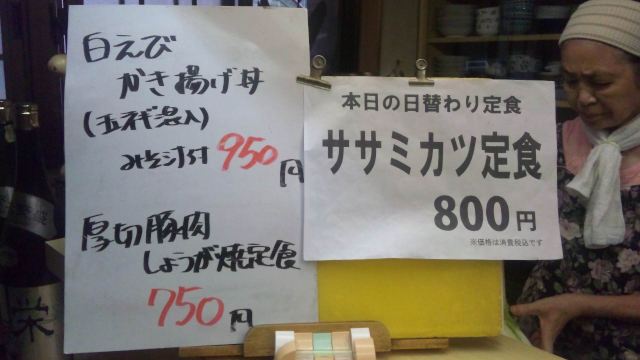 白えび
かき揚げ丼
(玉ネギ混入)
みそ汁付 950円
厚切豚肉
しょうが焼定食
750円
本日の日替わり定食
ササミカツ定食
800円
※価格は消費税込です
栄